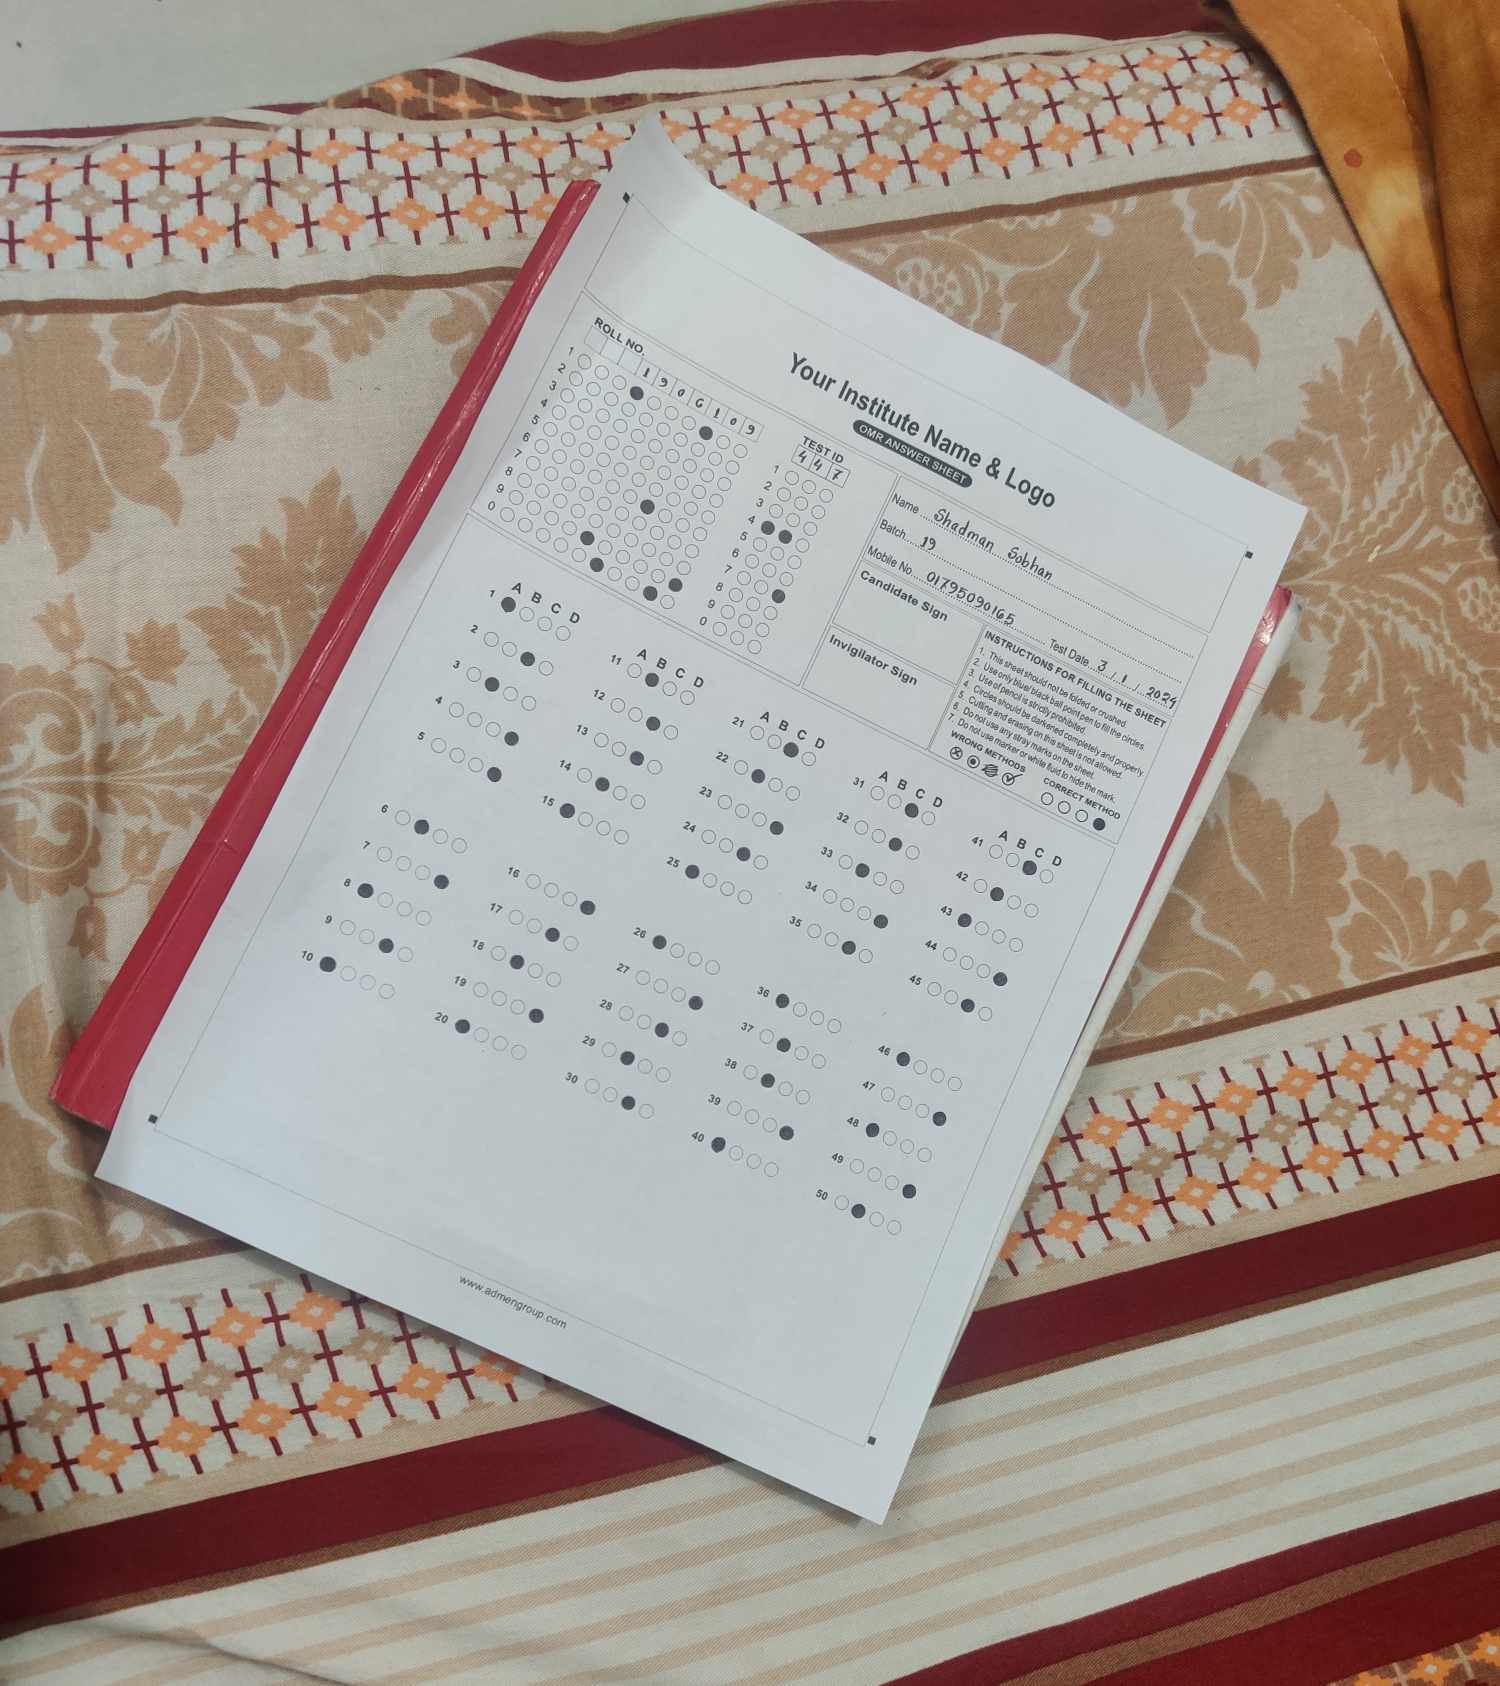 Your Institute Name & Logo
OMR ANSWER SHEET
ROLL NO.
1 9 0 6 1 0 9
1
2
3
4
5
6
7
8
9
0
TEST ID
4 4 7
1
2
3
4
5
6
7
8
9
0
Name Shadman Sobhan
Batch 19
Mobile No 01795090165 Test Date 3/1/2024
Candidate Sign
Invigilator Sign
INSTRUCTIONS FOR FILLING THE SHEET
1. This sheet should not be folded or crushed.
2. Use only blue/ black ball point pen to fill the circles.
3. Use of pencil is strictly prohibited.
4. Circles should be darkened completely and properly.
5. Cutting and erasing on this sheet is not allowed.
6. Do not use any stray marks on the sheet.
7. Do not use marker or white fluid to hide the mark.
WRONG METHODS
CORRECT METHOD
A B C D
1
2
3
4
5
6
7
8
9
10
A B C D
11
12
13
14
15
16
17
18
19
20
A B C D
21
22
23
24
25
26
27
28
29
30
A B C D
31
32
33
34
35
36
37
38
39
40
A B C D
41
42
43
44
45
46
47
48
49
50
www.admengroup.com